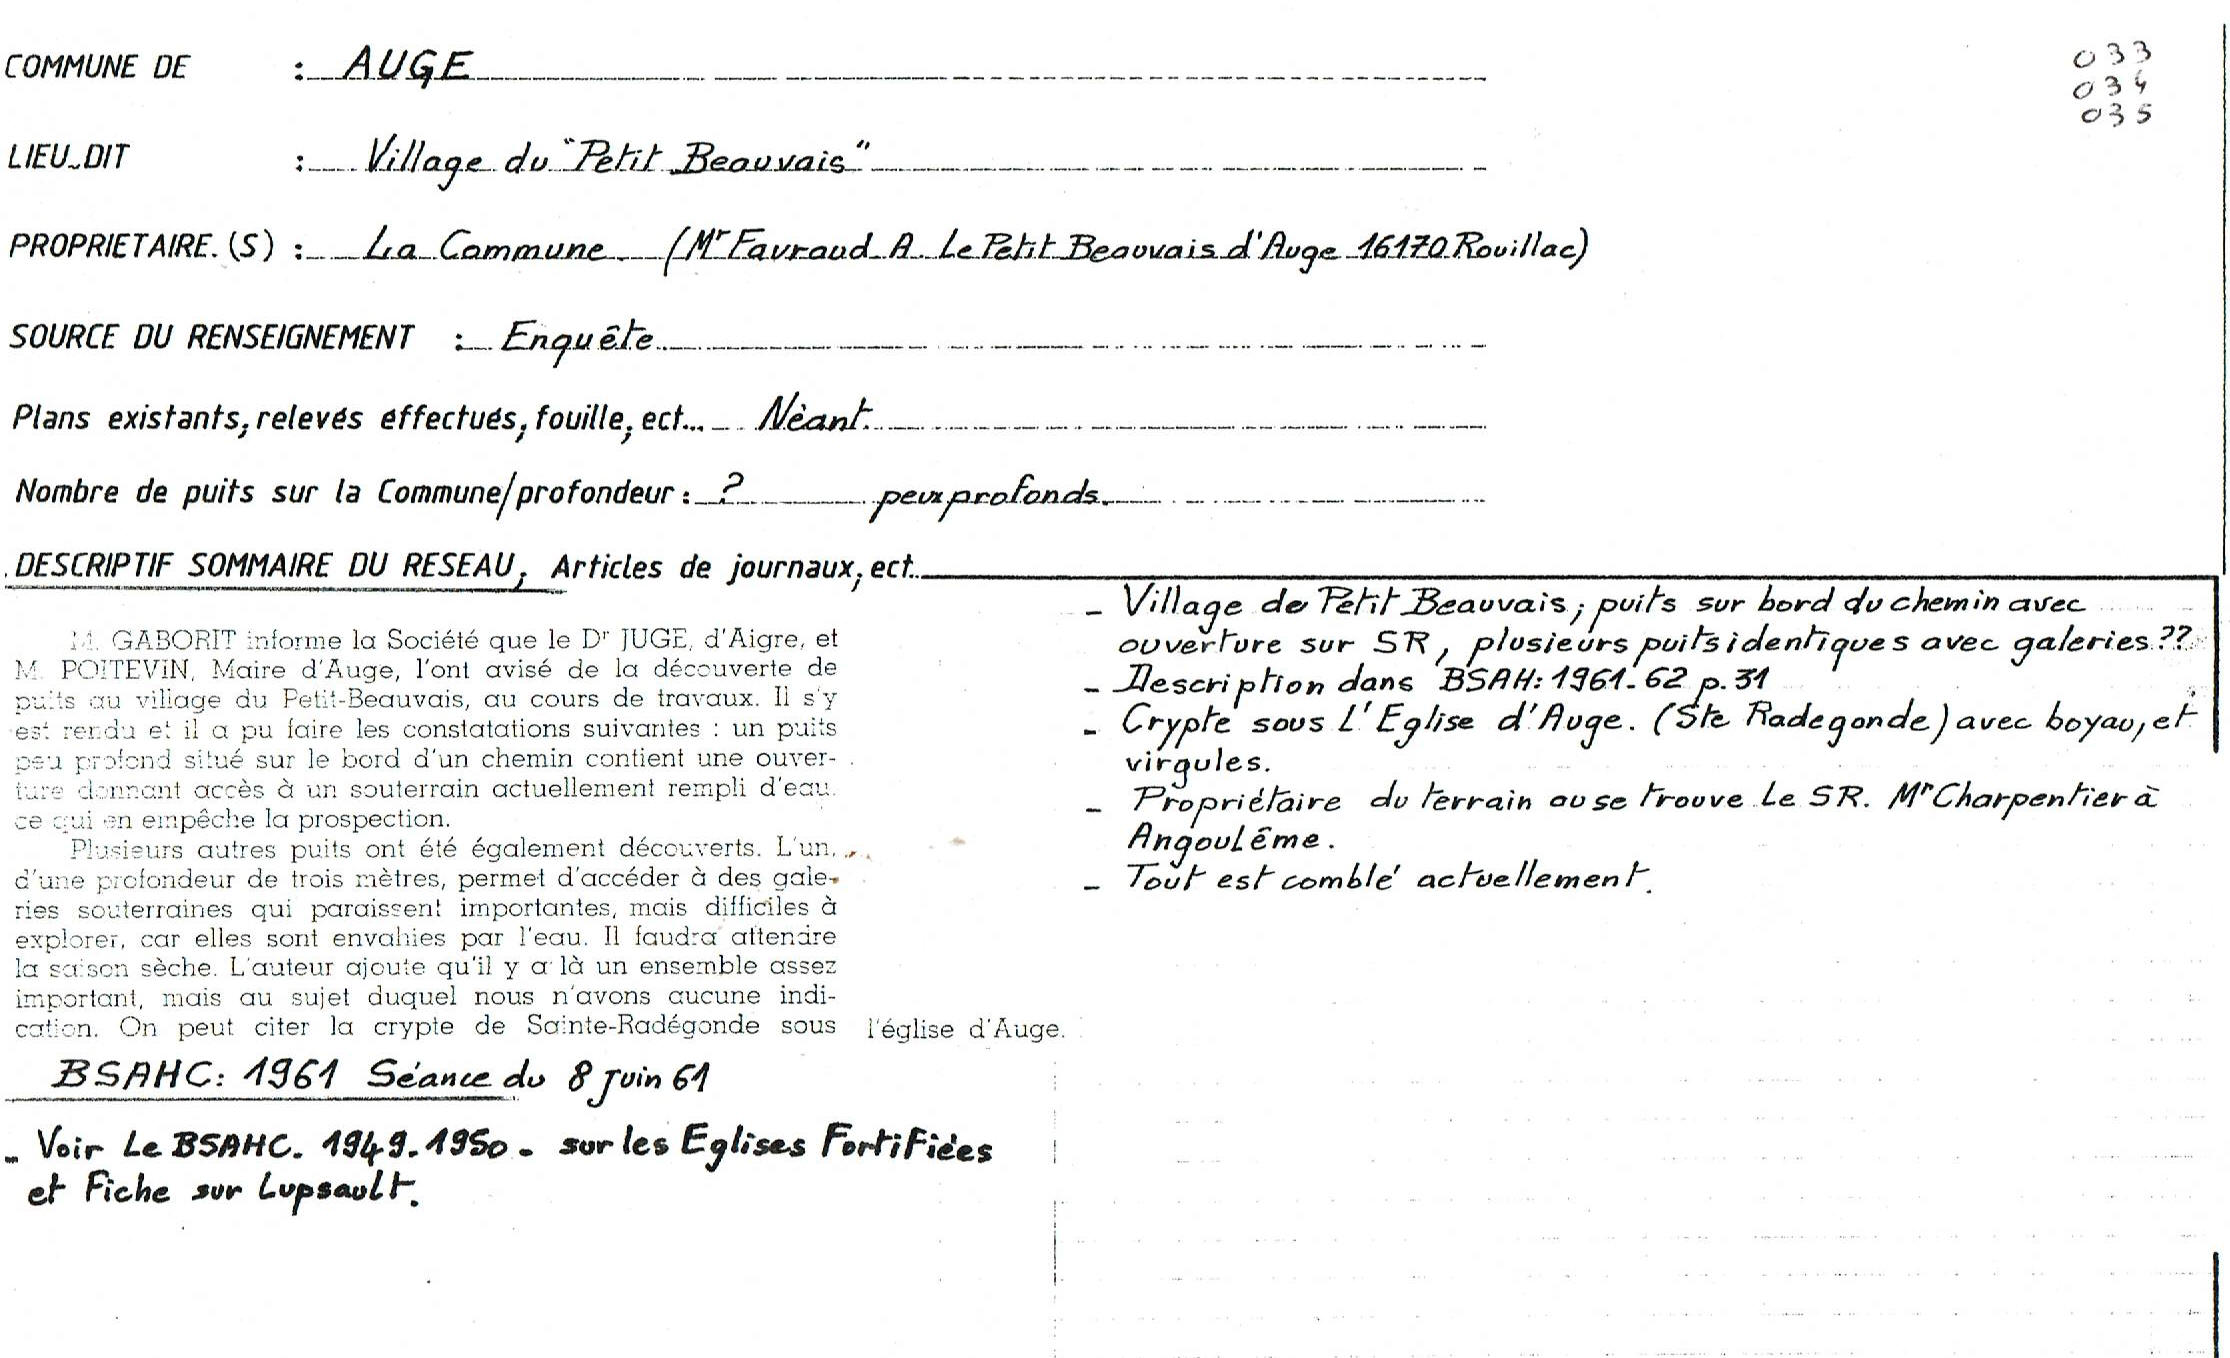 COMMUNE DE : AUGE
033
034
035
LIEU-DIT : Village du "Petit Beauvais"
PROPRIETAIRE.(S) : La Commune (Mr Favraud A. Le Petit Beauvais d'Auge 16170 Rouillac)
SOURCE DU RENSEIGNEMENT : Enquête
Plans existants, relevés éffectués, fouille, ect... Nèant.
Nombre de puits sur la Commune/profondeur : ? peux profonds.
DESCRIPTIF SOMMAIRE DU RESEAU, Articles de journaux, ect..
M. GABORIT informe la Société que le Dr JUGE, d'Aigre, et
M. POITEVIN, Maire d'Auge, l'ont avisé de la découverte de
puits au village du Petit-Beauvais, au cours de travaux. Il s'y
est rendu et il a pu faire les constatations suivantes : un puits
peu profond situé sur le bord d'un chemin contient une ouver-
ture donnant accès à un souterrain actuellement rempli d'eau.
ce qui en empêche la prospection.
Plusieurs autres puits ont été également découverts. L'un,
d'une profondeur de trois mètres, permet d'accéder à des gale-
ries souterraines qui paraissent importantes, mais difficiles à
explorer, car elles sont envahies par l'eau. Il faudra attendre
la saison sèche. L'auteur ajoute qu'il y a là un ensemble assez
important, mais au sujet duquel nous n'avons aucune indi-
cation. On peut citer la crypte de Sainte-Radégonde sous l'église d'Auge.
BSAHC: 1961 Séance du 8 Juin 61
- Voir Le BSAHC. 1949.1950. sur les Eglises Fortifiées
et Fiche sur Lupsault.
- Village de Petit Beauvais; puits sur bord du chemin avec
ouverture sur SR, plusieurs puits identiques avec galeries.??
- Description dans BSAH: 1961-62 p.31
- Crypte sous L'Eglise d'Auge. (Ste Radegonde) avec boyau, et
virgules.
- Propriétaire du terrain ou se trouve Le SR. Mr Charpentier à
Angoulême.
- Tout est comblé actuellement.